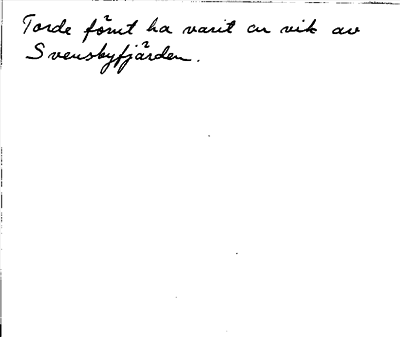 Torde förut ha varit en vik av
Svensbyfjärden.